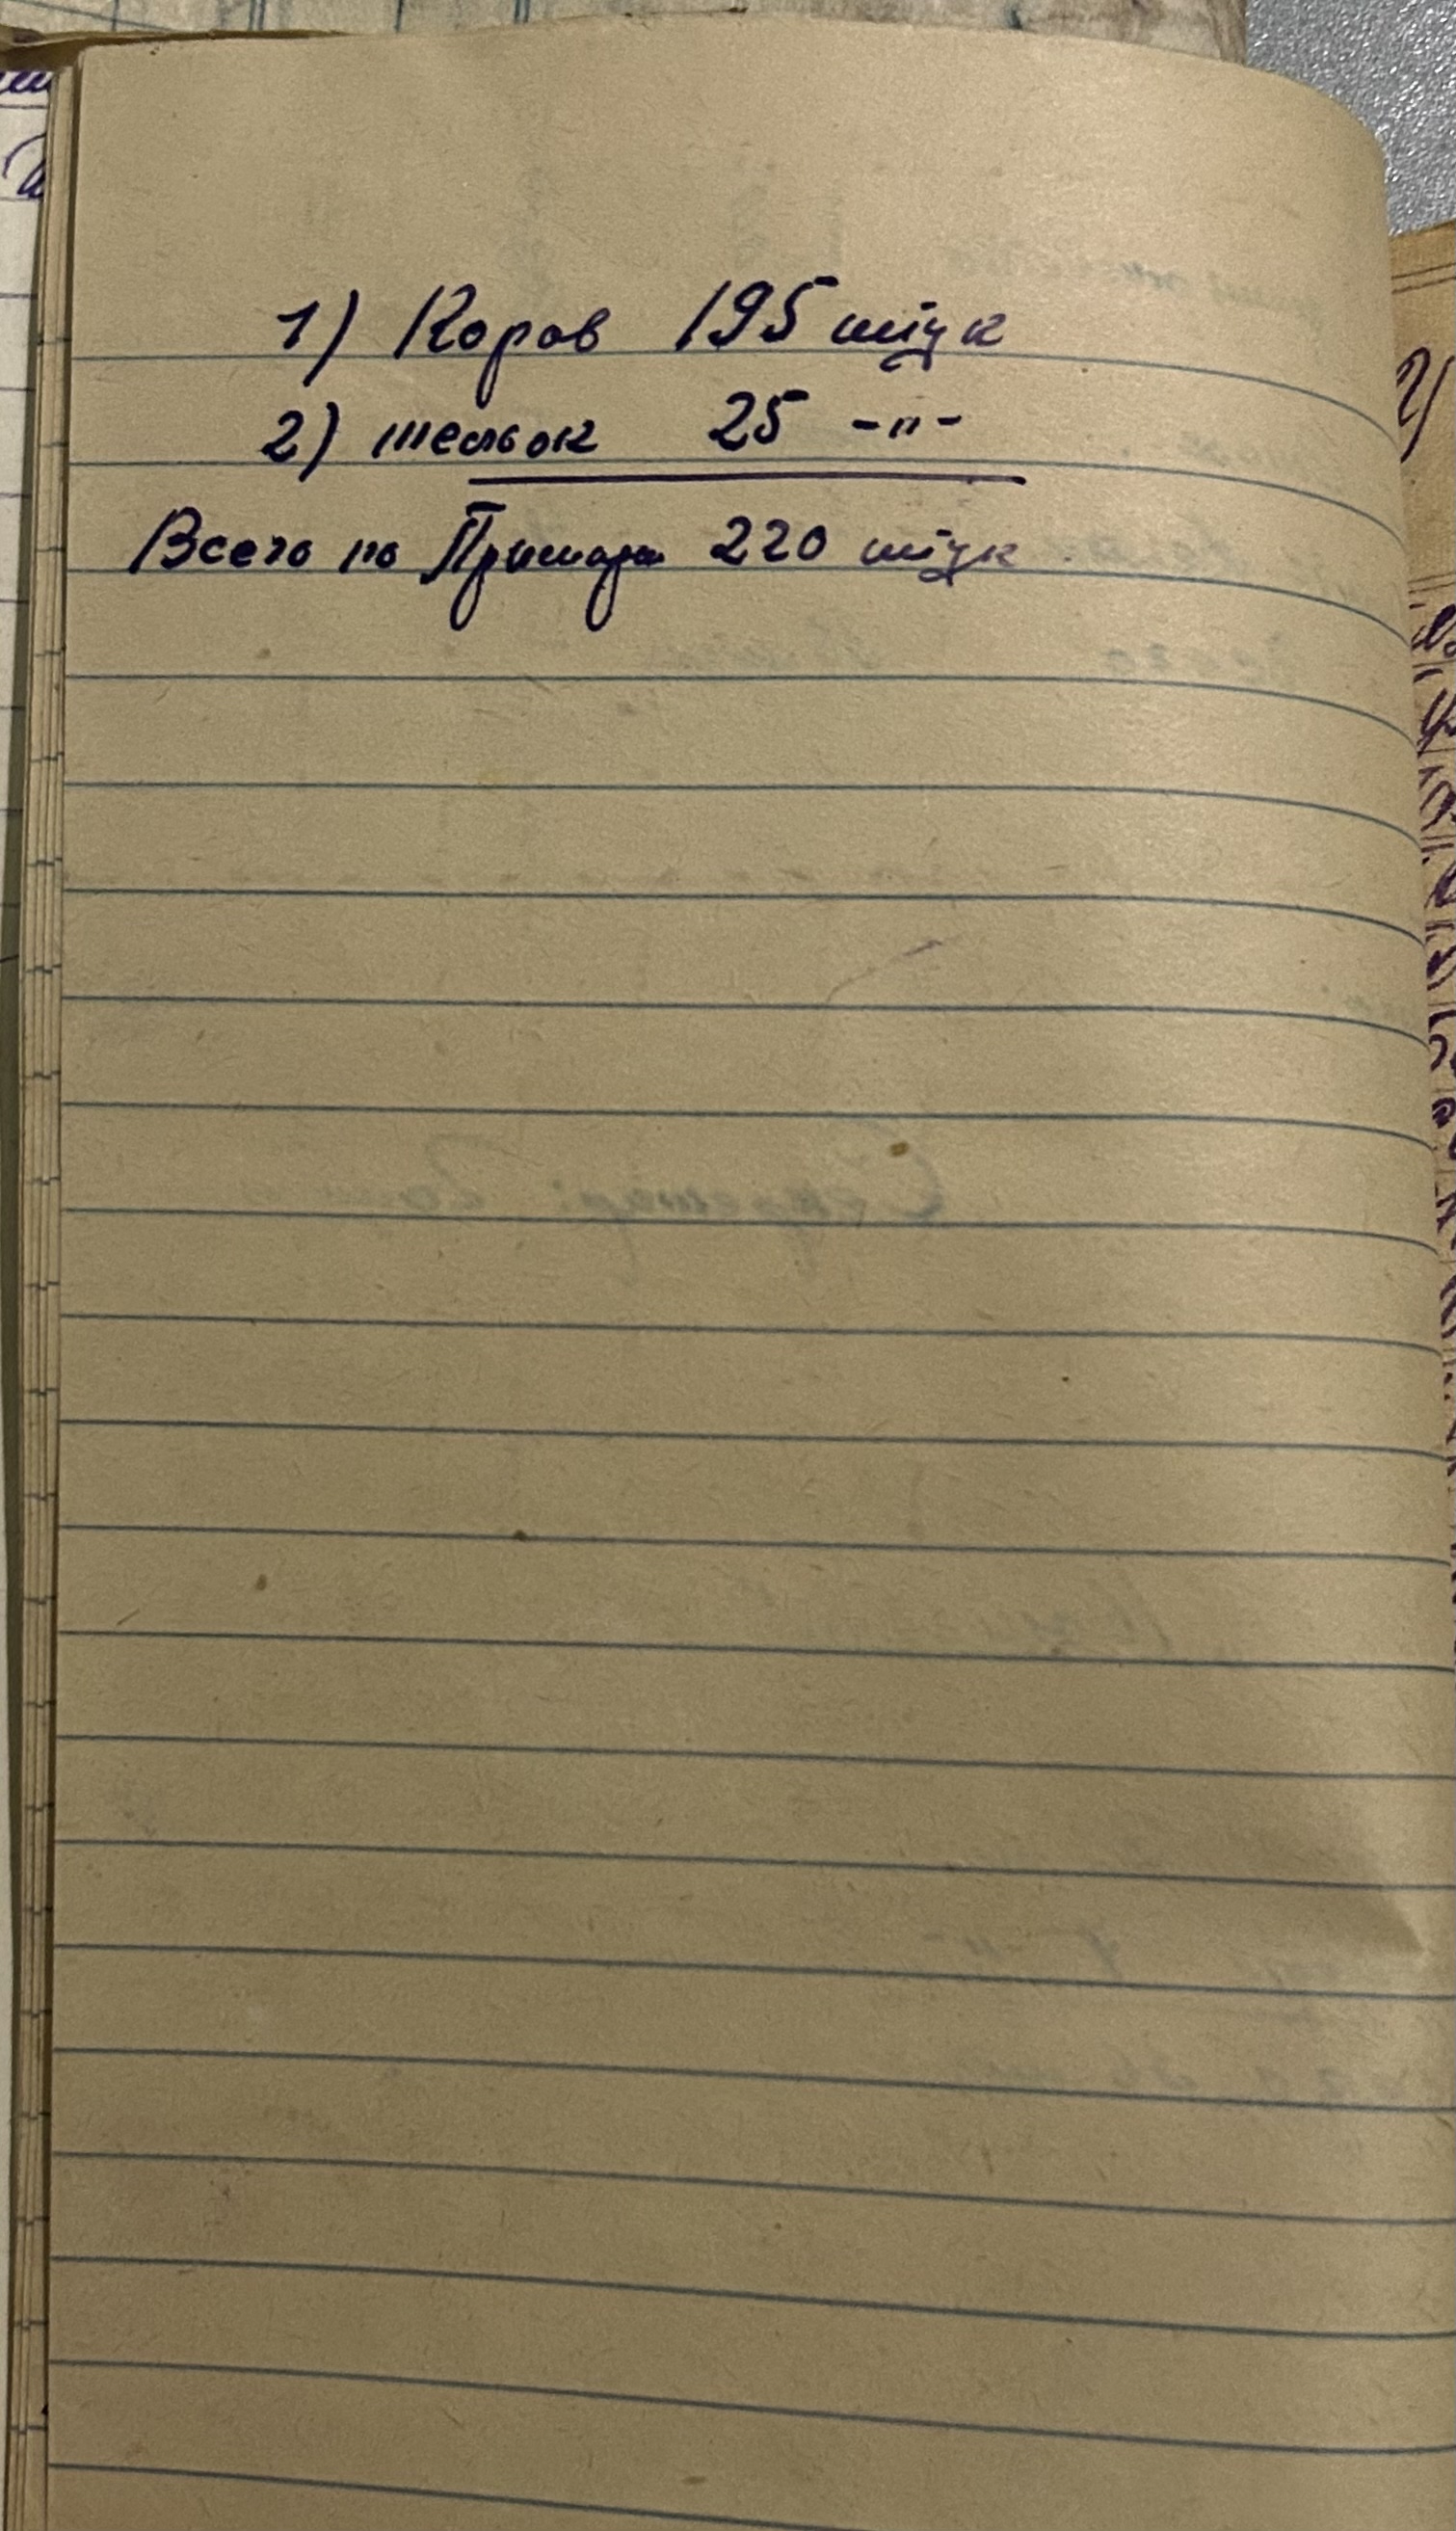 1) Коров 195 штук
2) тельок 25 -"-
Всего по Примари 220 штук